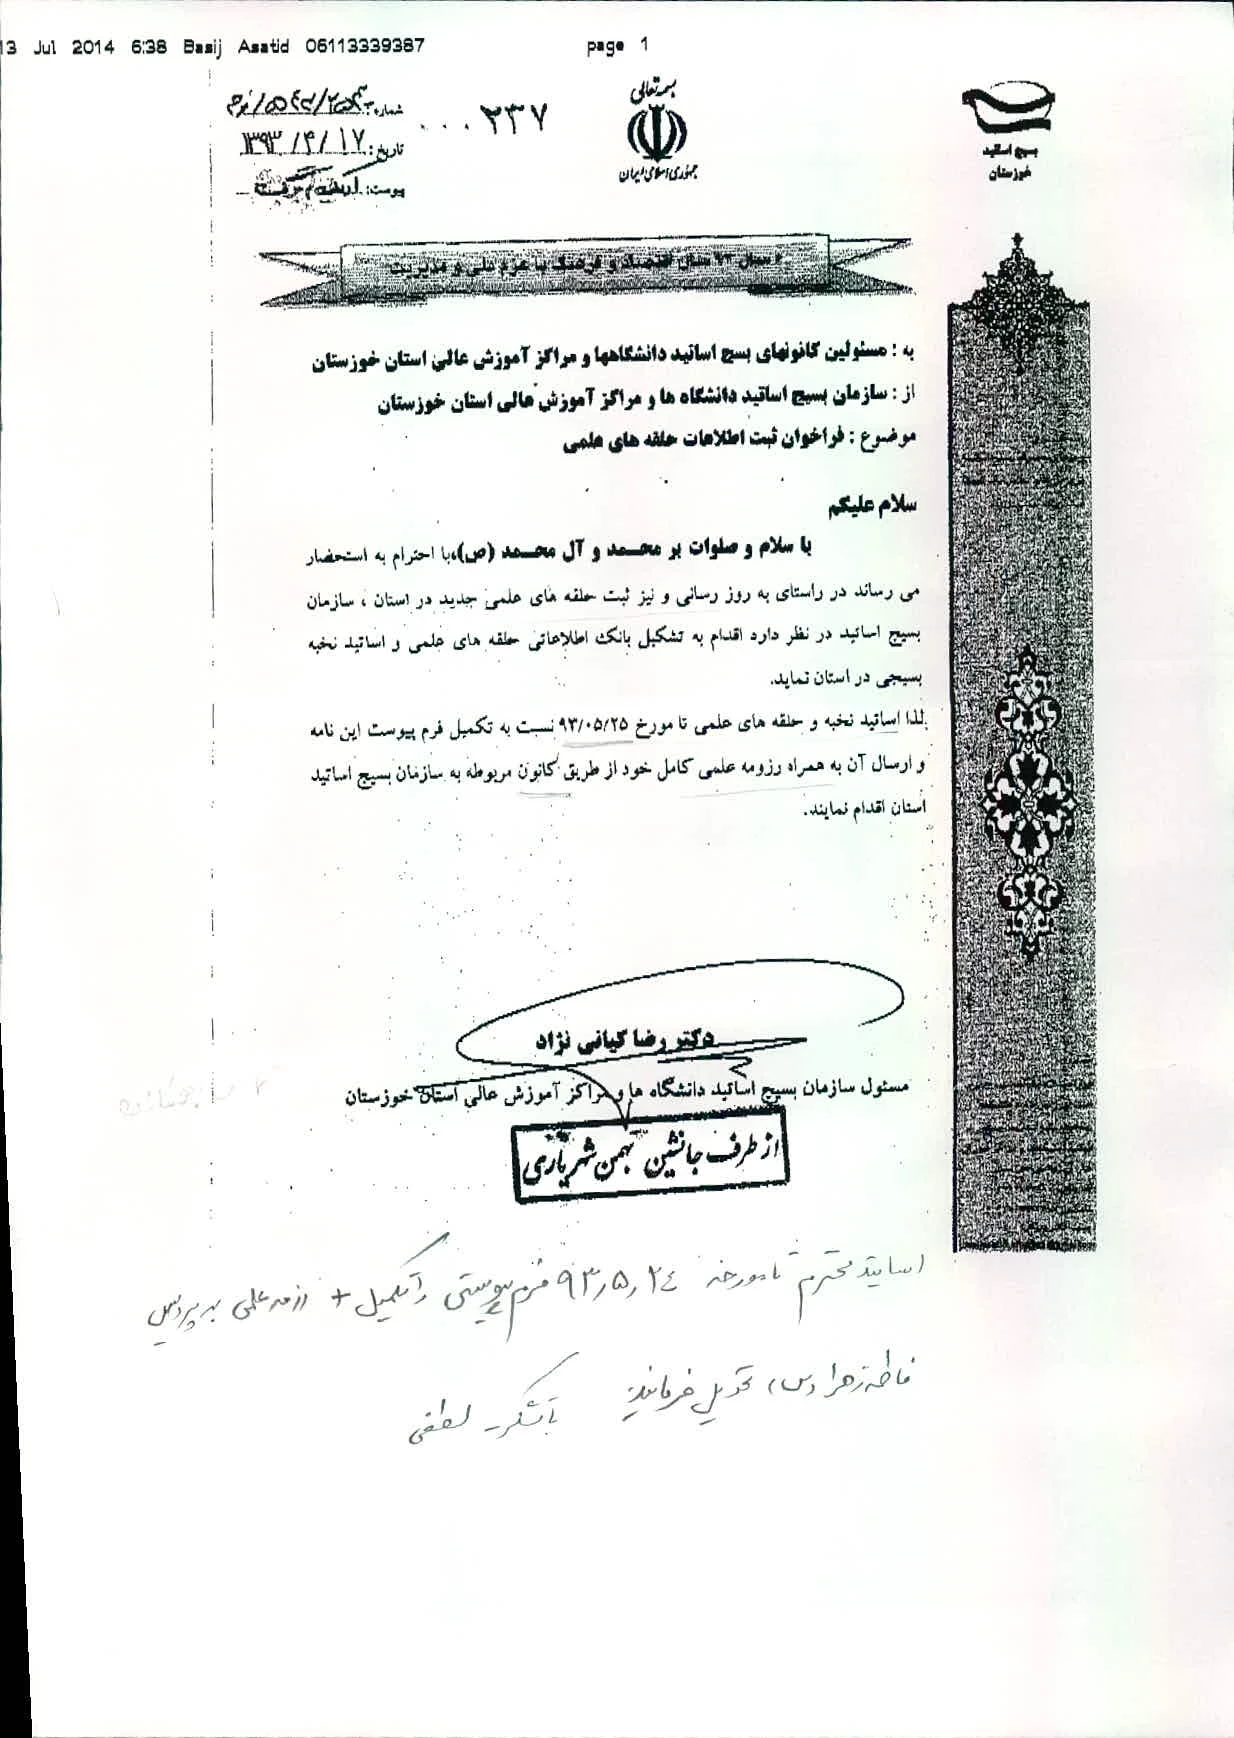 13 Jul 2014 6:38 Basij Asatid 06113339387 page 1
بسمه تعالی
جمهوری اسلامی ایران
بسیج اساتید
خوزستان
شماره:
تاریخ: ۱۳۹۳/۴/۱۷
پیوست:
۰۰۰۲۳۷
سال ۹۳ سال اقتصاد و فرهنگ با عزم ملی و مدیریت
به : مسئولین کانونهای بسیج اساتید دانشگاهها و مراکز آموزش عالی استان خوزستان
از : سازمان بسیج اساتید دانشگاه ها و مراکز آموزش عالی استان خوزستان
موضوع : فراخوان ثبت اطلاعات حلقه های علمی
سلام علیکم
با سلام و صلوات بر محمد و آل محمد (ص)،با احترام به استحضار
می رساند در راستای به روز رسانی و نیز ثبت حلقه های علمی جدید در استان ، سازمان
بسیج اساتید در نظر دارد اقدام به تشکیل بانک اطلاعاتی حلقه های علمی و اساتید نخبه
بسیجی در استان نماید.
لذا اساتید نخبه و حلقه های علمی تا مورخ ۹۳/۰۵/۲۵ نسبت به تکمیل فرم پیوست این نامه
و ارسال آن به همراه رزومه علمی کامل خود از طریق کانون مربوطه به سازمان بسیج اساتید
استان اقدام نمایند.
دکتر رضا کیانی نژاد
مسئول سازمان بسیج اساتید دانشگاه ها و مراکز آموزش عالی استان خوزستان
از طرف جانشین بهمن شهریاری
اساتید محترم تا مورخه ۹۳٫۵٫۲۴ فرم پیوستی را تکمیل + رزومه علمی به پردیس
فاطمه زهرا (س) تحویل فرمائید با تشکر لطفی